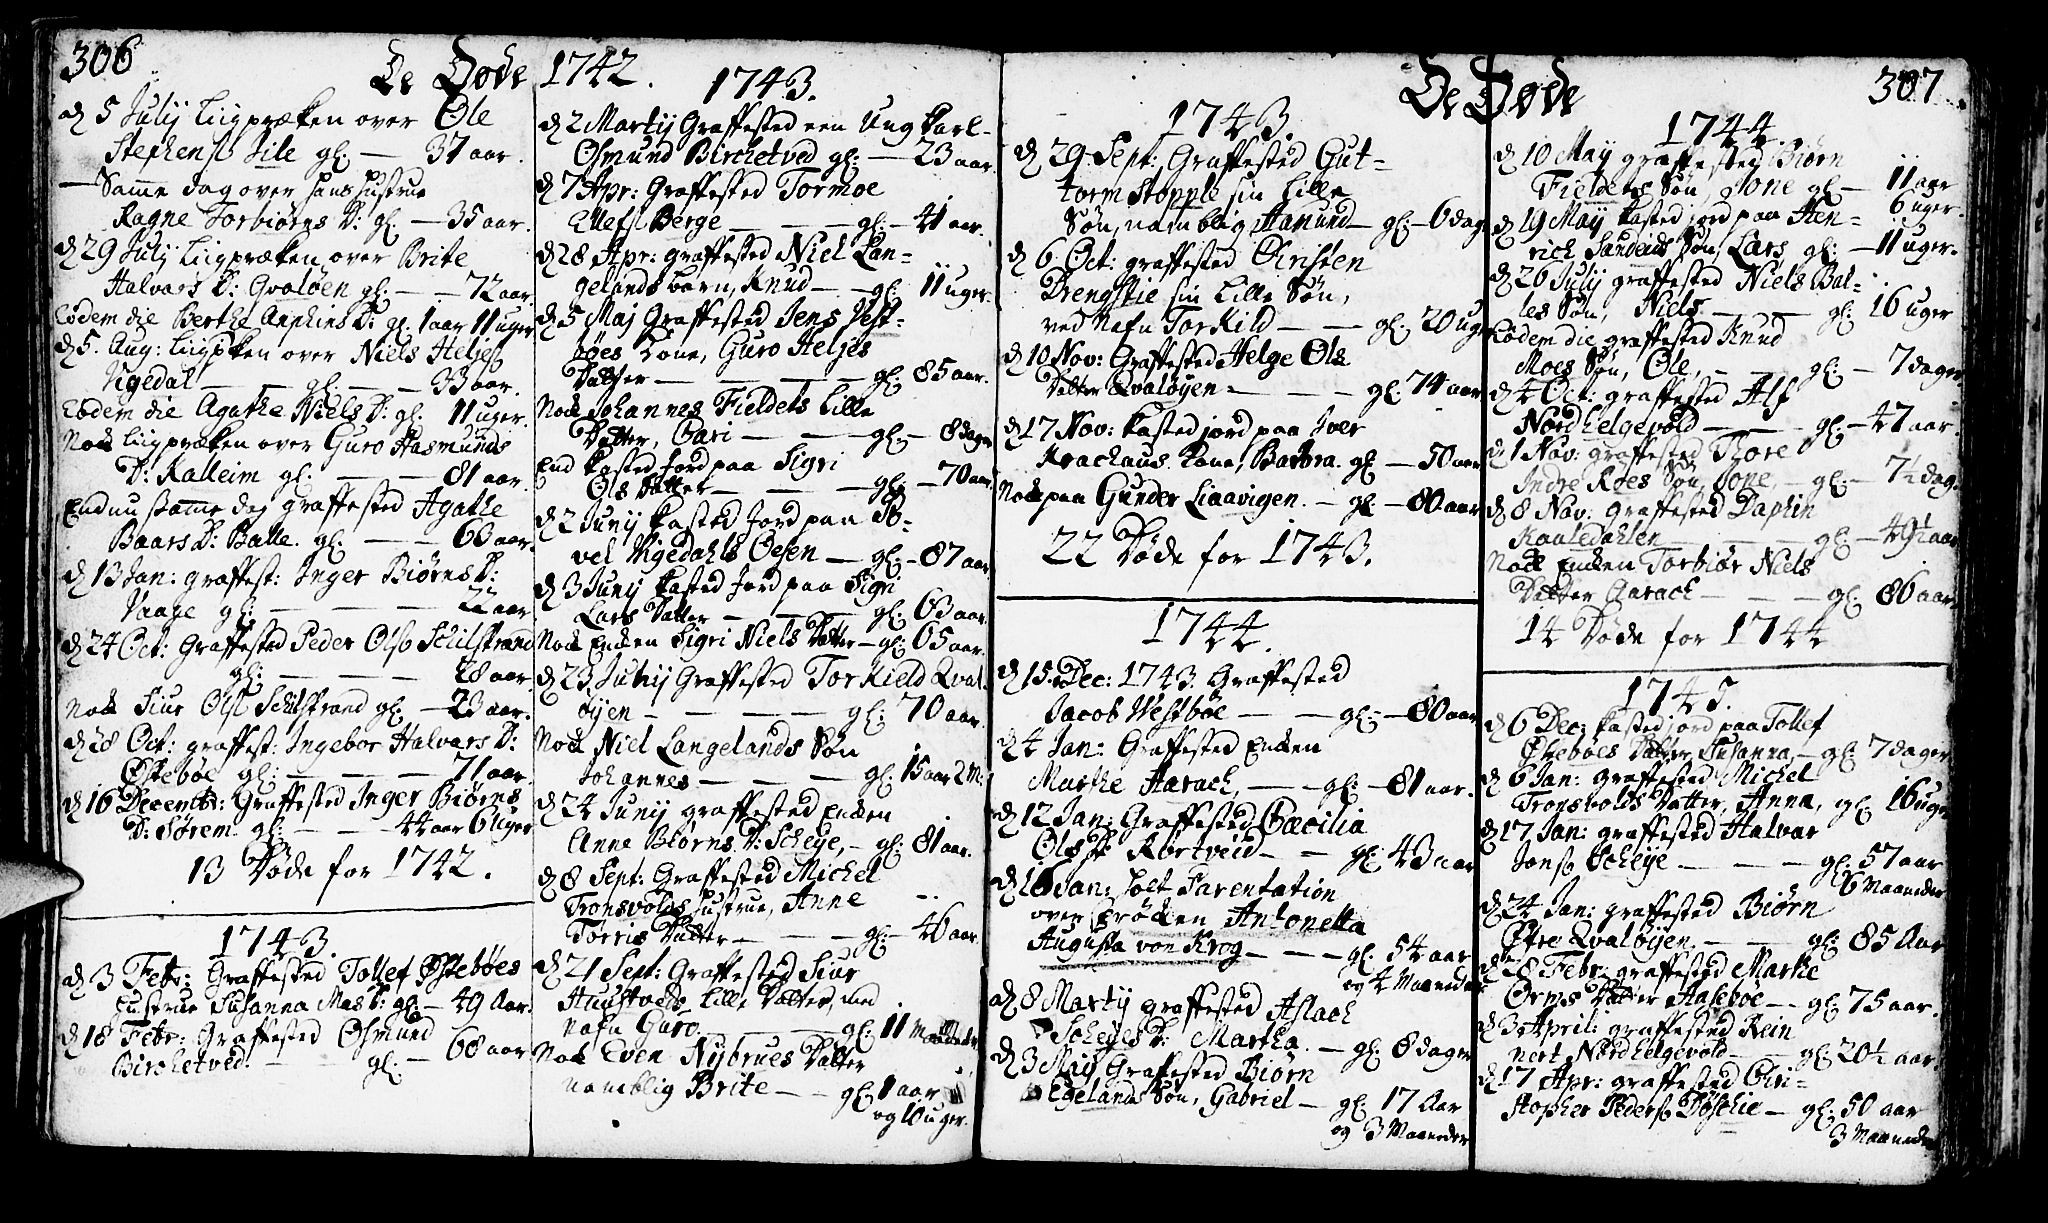 306
De Døde 1742.
d 5 Julij Liigpræken over Ole
Stephens: Jile gl: — 37 aar.
— Samme dag over hans hustrue
Ragne Torbiørns D: gl. — 35 aar.
d 29 Julij Liigpræken over Brite
Halvars D: Qvaløen gl: — — 72 aar.
Eodem die Berthe D: gl. 1 aar 11 uger
d 5. Aug: Liigpken over Niels Heljes:
Vigedal — — gl: — — 33 aar.
Eodem die Agathe Niels D: gl. 11 uger.
Nock Liigpræken over Guro Aasmunds
D: Kalleim gl: — — 81 aar.
Endnu samme dag graffested Agathe
Baars D: Balle. gl: — — 60 aar.
d 13 Jan: graffest: Inger Biørns D:
Vaage gl: — — — 22 aar
d 24 Oct: Graffested Peder Ols: Schilstrand
gl: — — — 28 aar.
Nock Siur Ols: Schilstrand gl — 23 aar.
d 28 Oct: graffest: Ingebor Halvars D:
Østebøe gl: — — — 71 aar.
d 16 Decembr: Graffested Inger Biørns
D: Sørem gl: — — — 44 aar 6 Uger
13 Døde for 1742.
1743.
d 3 Febr: Graffested Tollef Østebøes
hustrue Susanna Mas D: gl — 49 Aar.
d 18 Febr: Graffested Osmund
Birchetved. — — gl. — 68 aar
1743.
d 2 Martij Graffested een Ung karl
Osmund Birchetved gl: — 23 aar
d 7 Apr: Graffested Tormoe
Ellefs: Berge — — gl: — 41 aar.
d 28 Apr: graffested Niel Lan-
gelands barn, Knud — — gl: 11 uger.
d 5 Maj Graffested Jens Vest-
bøes kone, Guro Heljes
Datter — — — — gl: 85 aar.
Nock Johannes Fieldets lille
Datter, Gari — — — gl: — 8 dager
End kasted Jord paa Sigri
Ols Datter — — — gl: — 70 aar.
d 2 Junij kasted Jord paa
Vigedahls — gl: — 87 aar
d 3 Junij kasted Jord paa Sigri
Lars Datter — — — gl: 63 aar.
Nock Enken Sigri Niels Datter — gl: 65 aar.
d 23 Junij Graffested Torkield Qval-
øyen — — — — gl: 70 aar.
Nock Niel Langelands Søn
Johannes — — — gl: 15 aar 2 M:
d 24 Junij graffested Enken
Anne Biørns D: Scheye, — gl: 81 aar.
d 8 Sept: Graffested Michel
Tronsvolds hustrue, Anne
Torris Datter — — — gl: — 40 aar.
d 21 Sept: Graffested Siur
lille Datter, med
nafn Guro. — — — gl: 11 Maaneder
Nock Even Nybrues Datter
namblig Brite — — gl: 1 aar
og 10 uger.
De Døde
307
1743.
d 29 Sept: Graffested Gut-
torm Stopple sin lille
Søn, namblig Aamund — gl: — 6 dag
d 6 Oct: graffested Christen
Drengstie sin lille Søn,
ved Nafn Torkild — — gl: 20 uger
d 10 Nov: Graffested Helge Ols
Datter Qvaløyen — — — gl: 74 aar
d 17 Nov: kasted jord paa Iver
Krachaus kone, Barbra. gl — 50 aar
Nock paa Gunder Liaavigen. — gl: — 80 aar
22 Døde for 1743.
1744.
d 15 Dec: 1743 Graffested
Jacob Westbøe — — gl: — 80 aar
d 4 Jan: Graffested Enken
Marthe Aarach, — — gl: — 81 aar.
d 12 Jan: Graffested Cæcilia
Ols D: Rørtveid — — gl: 43 aar
d 16 Jan: holt Parentation
over Frøcken Antonetta
Augusta von Krog — — — gl: 54 aar
og 4 Maaneder
d 8 Martij graffested Aslach
Scheyes D: Martha. — gl: 8 dager
d 3 Maij Graffested Biørn
Egelands Søn, Gabriel — gl: 17 Aar
og 3 Maaneder
1744
d 10 Maij graffested Biørn
Fieldets Søn, Jone gl — 11 aar
6 uger.
d 19 Maij kasted jord paa Hen-
rich Sandeids Søn, Lars gl: — 11 uger.
d 26 Julij graffested Niels Bal-
les Søn, Niels — — — gl: 16 uger
Eodem die graffested Knud
Moes Søn, Ole, — — gl: — 7 dager
d 4 Oct: graffested Alf
Nordhelgevold — — — gl: — 47 aar.
d 1 Nov: graffested Thore
Indre Roes Søn, Jone, — gl: — 7½ dag.
d 8 Nov: graffested Daphin
Kaaledahlen — — — gl: — 49½ aar
Nock Enken Torbiør Niels
Datter Aarach — — — gl: 86 aar.
14 Døde for 1744
1745.
d 6 Dec: kasted jord paa Tollef
Østebøes Datter Susanna, — gl: 7 dager
d 6 Jan: graffested Michel
Tronsvolds Datter, Anna, gl: 16 uger
d 17 Jan: graffested Halvar
Jons: Scheye — — — gl: 57 aar
6 Maaneder
d 24 Jan: graffested Biørn
Qvaløyen. — — gl: 85 Aar
d 28 Febr: graffested Marthe
Orms Datter Aasebøe — gl: 75 aar.
d 3 April: graffested Rein
nert Nordhelgevold — — gl: 20½ aar.
d 17 Apr: graffested Chri-
stopher Peders: Døschie — gl: 50 aar
3 Maaneder